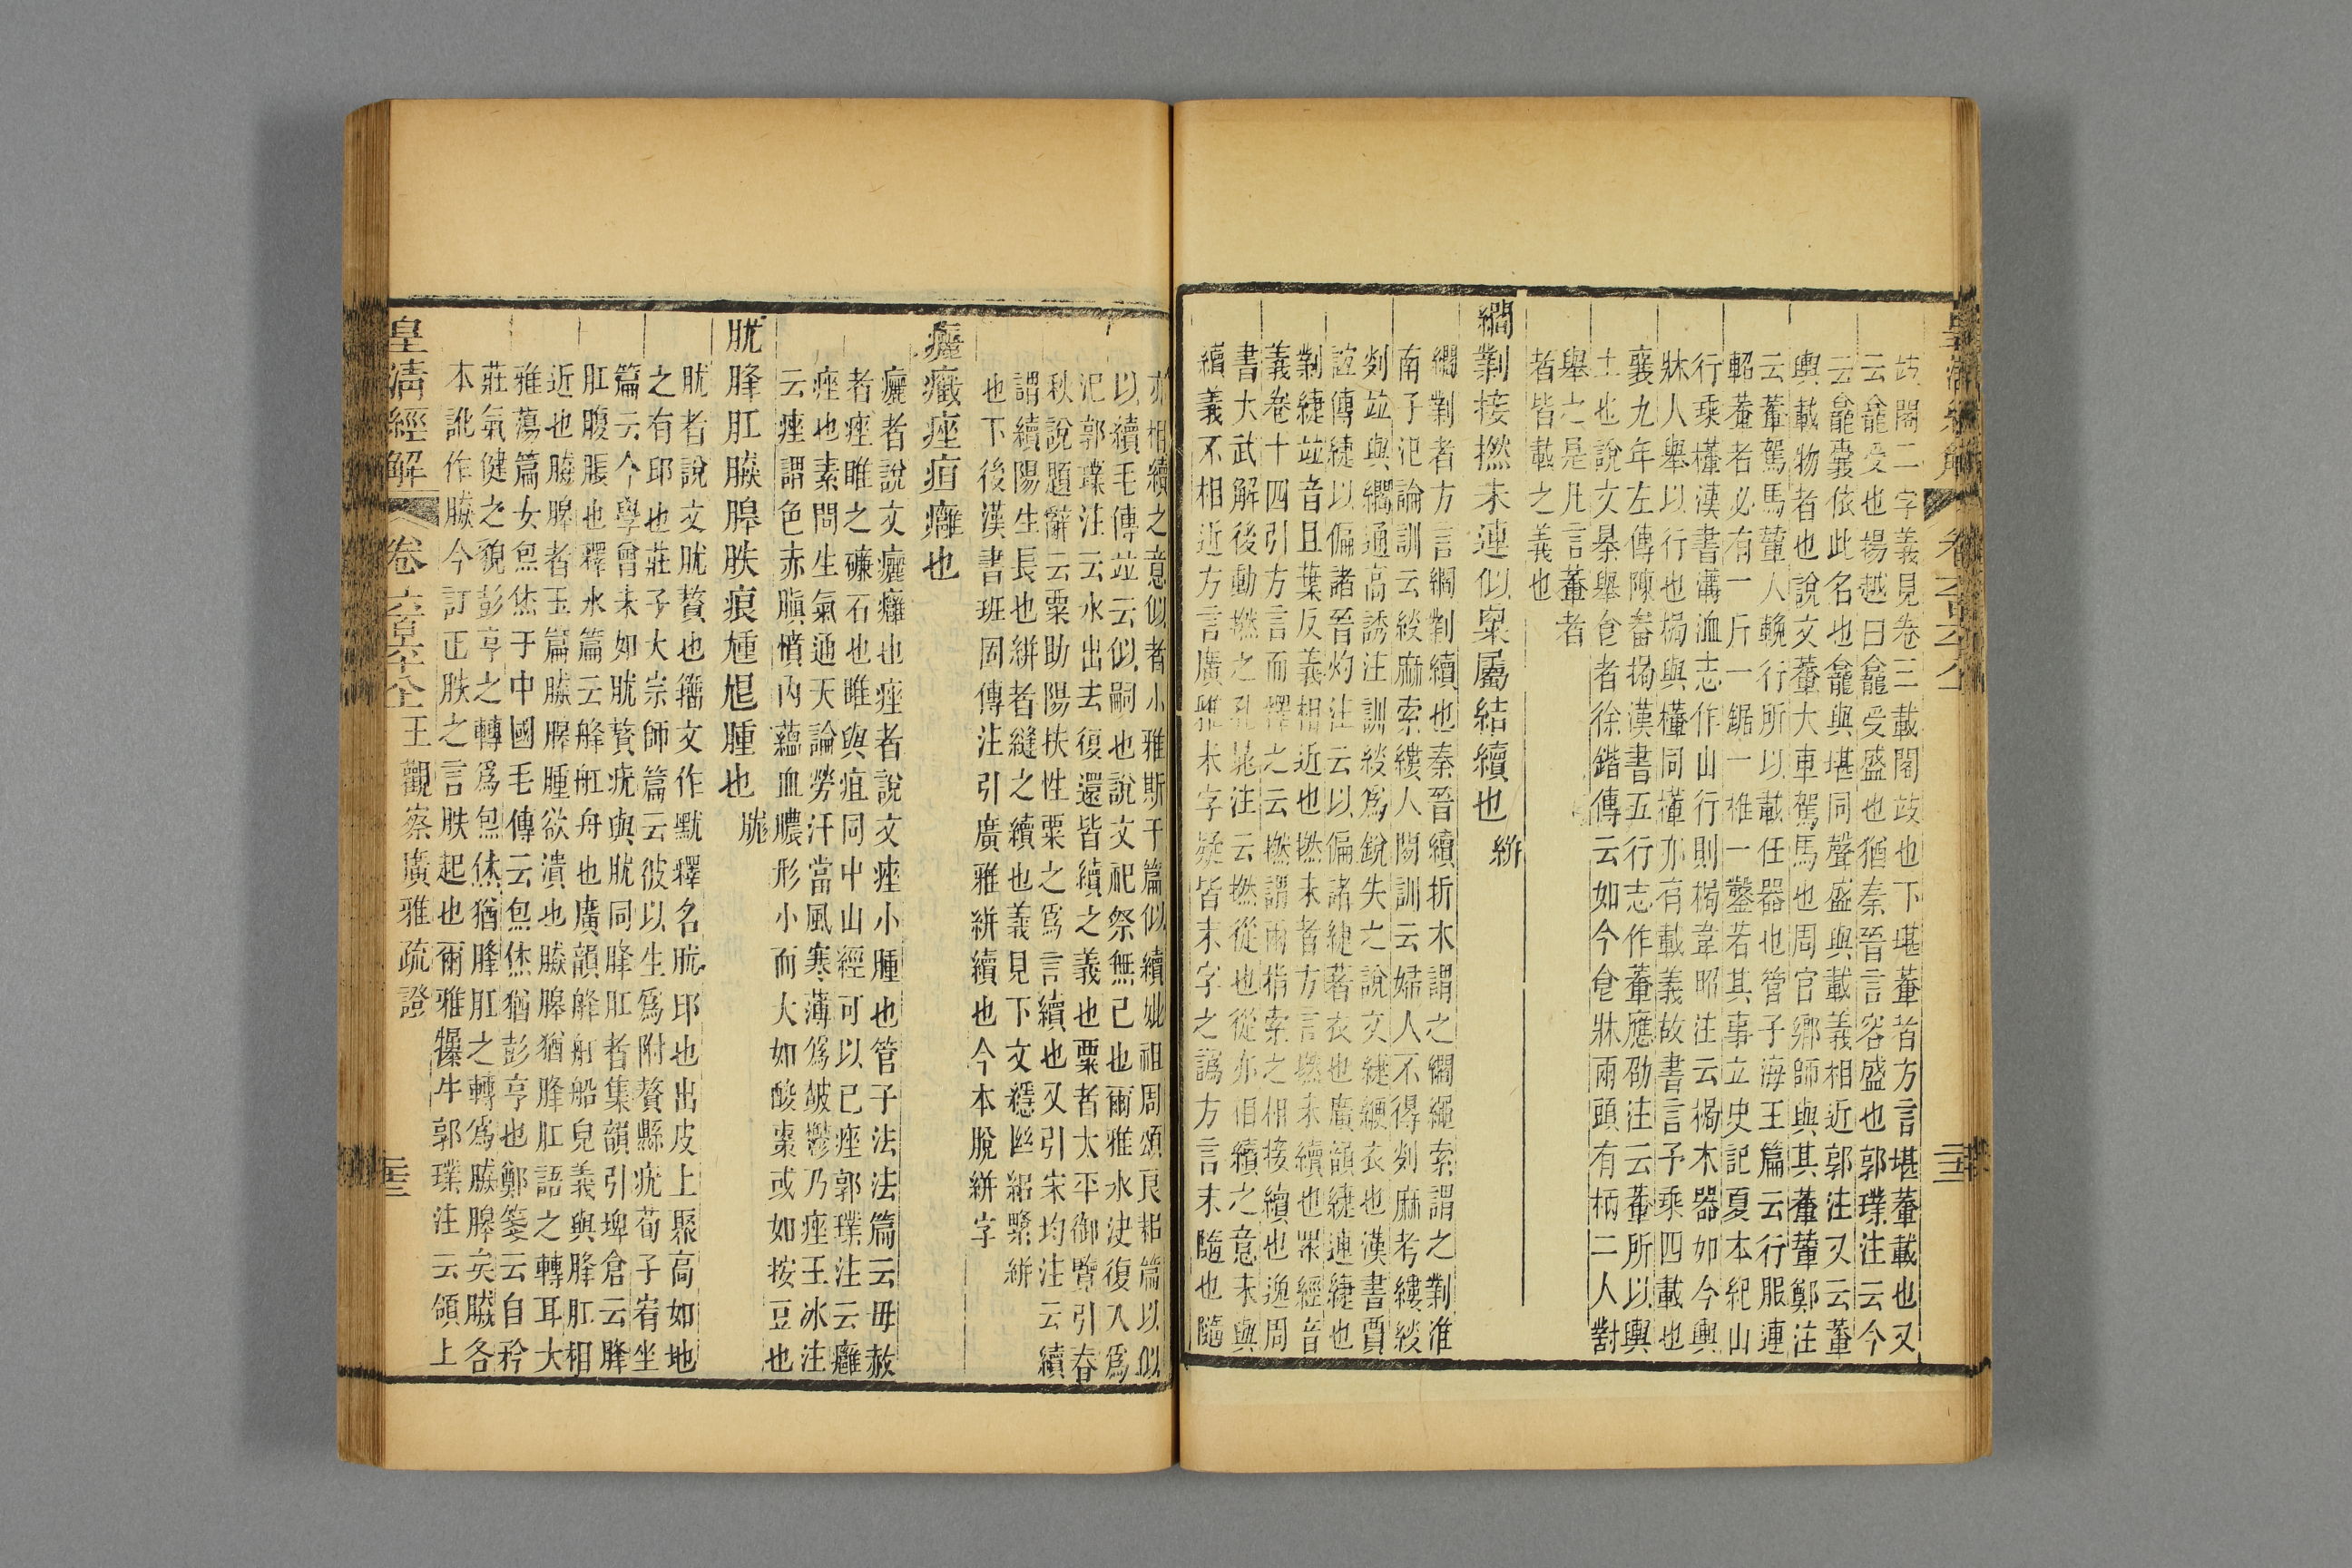 攱閣二字義見卷三載閣攱也下堪輂者方言堪輂載也又
云龕受也揚越曰龕受盛也猶秦晉言容盛也郭璞注云今
云龕囊依此名也龕與堪同聲盛與載義相近郭注又云輂
輿載物者也說文輂大車駕馬也周官鄉師與其輂輦鄭注
云輂駕馬輦人輓行所以載任器也管子海王篇云行服連
軺輂者必有一斤一鋸一椎一鑿若其事立史記夏本紀山
行乘檋漢書溝洫志作山行則梮韋昭注云梮木器如今輿
牀人舉以行也梮與檋同檋亦有載義故書言予乘四載也
襄九年左傳陳畚挶漢書五行志作輂應劭注云輂所以輿
土也說文暴舉食者徐鍇傳云如今食牀兩頭有柄二人對
舉之是凡言輂者
者皆載之義也
繝剿接撚未連似㮚屬結續也 絣
繝剿者方言繝剿續也秦晉續折木謂之繝繩索謂之剿淮
南子氾論訓云緂麻索縷人閒訓云婦人不得剡麻考縷緂
剡竝與繝通高誘注訓緂爲銳失之說文緁緶衣也漢書賈
誼傳緁以偏諸晉灼注云以偏諸緁著衣也廣韻緁連緁也
剿緁竝音且葉反義相近也撚未者方言撚未續也衆經音
義卷十四引方言而釋之云撚謂兩指索之相接續也逸周
書大武解後動撚之孔晁注云撚從也從亦相續之意未與
續義不相近方言廣雅未字疑皆末字之譌方言末隨也隨
亦相續之意似者小雅斯干篇似續妣祖周頌良耜篇以似
以續毛傳竝云似嗣也說文祀祭無已也爾雅水決復入爲
汜郭璞注云水出去復還皆續之義也粟者太平御覽引春
秋說題辭云粟助陽扶性粟之爲言續也又引宋均注云續
謂續陽生長也絣者縫之續也義見下文穩䋺紹縏絣
也下後漢書班固傳注引廣雅絣續也今本脫絣字
癰癥痤疽癕也
癰者說文癰癕也痤者說文痤小腫也管子法法篇云毋赦
者痤睢之礦石也睢與疽同中山經可以已痤郭璞注云癕
痤也素問生氣通天論勞汗當風寒薄爲皶鬱乃痤王冰注
云痤謂色赤䐜憤內蘊血膿形小而大如酸棗或如按豆也
肬胮肛䐿𦢊胅痕尰尯腫也 㿺
肬者說文肬贅也籀文作黕釋名肬邱也出皮上聚高如地
之有邱也莊子大宗師篇云彼以生爲附贅縣疣荀子宥坐
篇云今學曾未如肬贅疣與肬同胮肛者集韻引埤倉云胮
肛腹脹也釋水篇云舽舡舟也廣韻舽舡船皃義與胮肛相
近也䐿𦢊者玉篇䐿𦢊腫欲潰也䐿𦢊猶胮肛語之轉耳大
雅蕩篇女炰烋于中國毛傳云炰烋猶彭亨也鄭箋云自矜
莊氣健之貌彭亨之轉爲炰烋猶胮肛之轉爲䐿𦢊矣䐿各
本訛作䐿今訂正胅之言胅起也爾雅犦牛郭璞注云領上
皇清經解 卷六百六十八 王觀察廣雅疏證 二十三